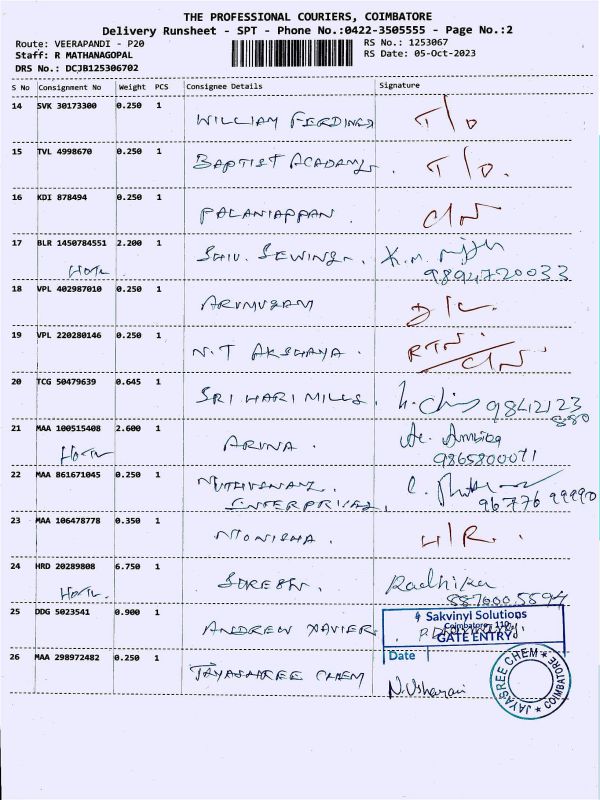 THE PROFESSIONAL COURIERS, COIMBATORE
Delivery Runsheet - SPT - Phone No.:0422-3505555 - Page No.:2
Route: VEERAPANDI - P20
Staff: R MATHANAGOPAL
DRS No.: DCJB125306702
RS No.: 1253067
RS Date: 05-Oct-2023
S No Consignment No Weight PCS Consignee Details Signature
14 SVK 30173300 0.250 1 WILLIAM FERDINGS T/O
15 TVL 4998670 0.250 1 BAPTIST ACADAMY. T/O.
16 KDI 878494 0.250 1 PALANIAPPAN. C/N
17 BLR 1450784551 2.200 1 SHIV. SEWING. K.M.
9894720033
18 VPL 402987010 0.250 1 ARUMUGAM D/C.
19 VPL 220280146 0.250 1 N.T AKSHAYA. RTN. C/N
20 TCG 50479639 0.645 1 SRI HARI MILLS. 98412123
880
21 MAA 100515408 2.600 1 ARUNA. Ambiga
9865800071
22 MAA 861671045 0.250 1
ENTERPRISES. 96776 99990
23 MAA 106478778 0.350 1 MONISHA. H/R.
24 HRD 20289808 6.750 1 SURESH. Radhika
887600 5894
25 DDG 5023541 0.900 1 ANDREW XAVIER.
Sakvinyl Solutions
Coimbatore
GATE ENTRY
Date
26 MAA 298972482 0.250 1 JAYASHREE CHEM N. Usharani
JAYASREE CHEM ★ COIMBATORE ★